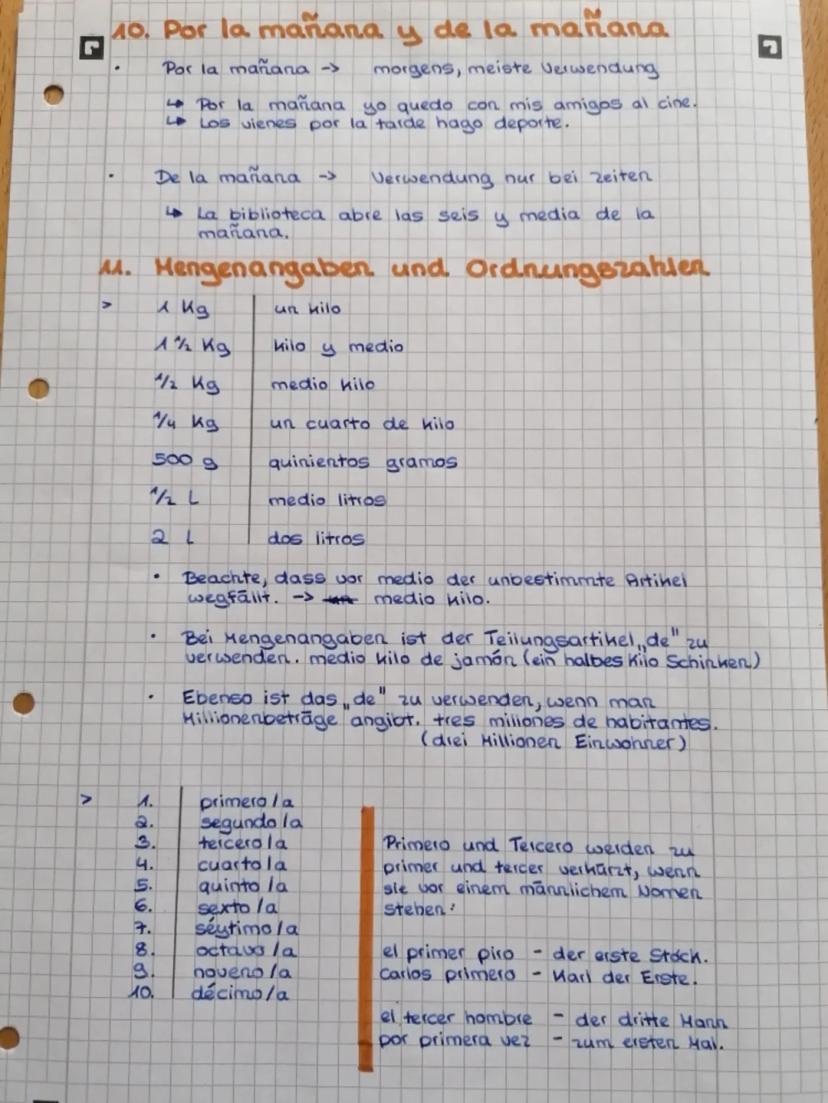 10. Por la mañana y de la mañana
• Por la mañana -> morgens, meiste Verwendung
↳ Por la mañana yo quedo con mis amigos al cine.
↳ Los vienes por la tarde hago deporte.
• De la mañana -> Verwendung nur bei zeiten
↳ La biblioteca abre las seis y media de la
mañana.
11. Mengenangaben und Ordnungszahlen
> 1 Kg un kilo
1 1/2 Kg kilo y medio
1/2 Kg medio kilo
1/4 Kg un cuarto de kilo
500 g quinientos gramos
1/2 L medio litros
2 L dos litros
• Beachte, dass vor medio der unbestimmte Artikel
wegfällt. -> un medio kilo.
• Bei Mengenangaben ist der Teilungsartikel „de" zu
verwenden. medio kilo de jamón (ein halbes Kilo Schinken)
• Ebenso ist das „de" zu verwenden, wenn man
Millionenbeträge angibt. tres millones de habitantes.
(drei Millionen Einwohner)
> 1. primero/a
2. segundo/a
3. tercero/a
4. cuarto/a
5. quinto/a
6. sexto/a
7. séytimo/a
8. octavo/a
9. noveno/a
10. décimo/a
Primero und Tercero werden zu
primer und tercer verkürzt, wenn
sie vor einem männlichem Nomen
stehen:
el primer piro - der erste Stock.
Carlos primero - Karl der Erste.
el tercer hombre - der dritte Mann
por primera vez - zum ersten Mal.